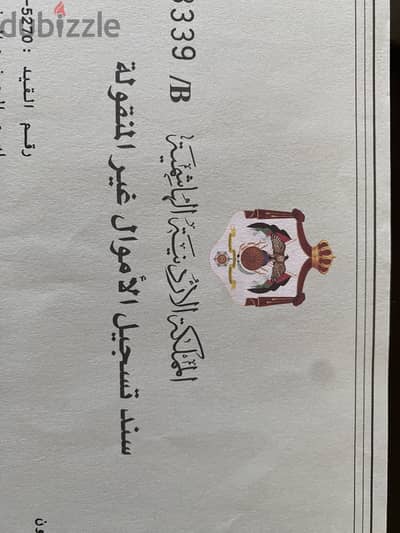 dubizzle
3339 /B
المملكة الأردنية الهاشمية
سند تسجيل الأموال غير المنقولة
رقم القيد : 5270-